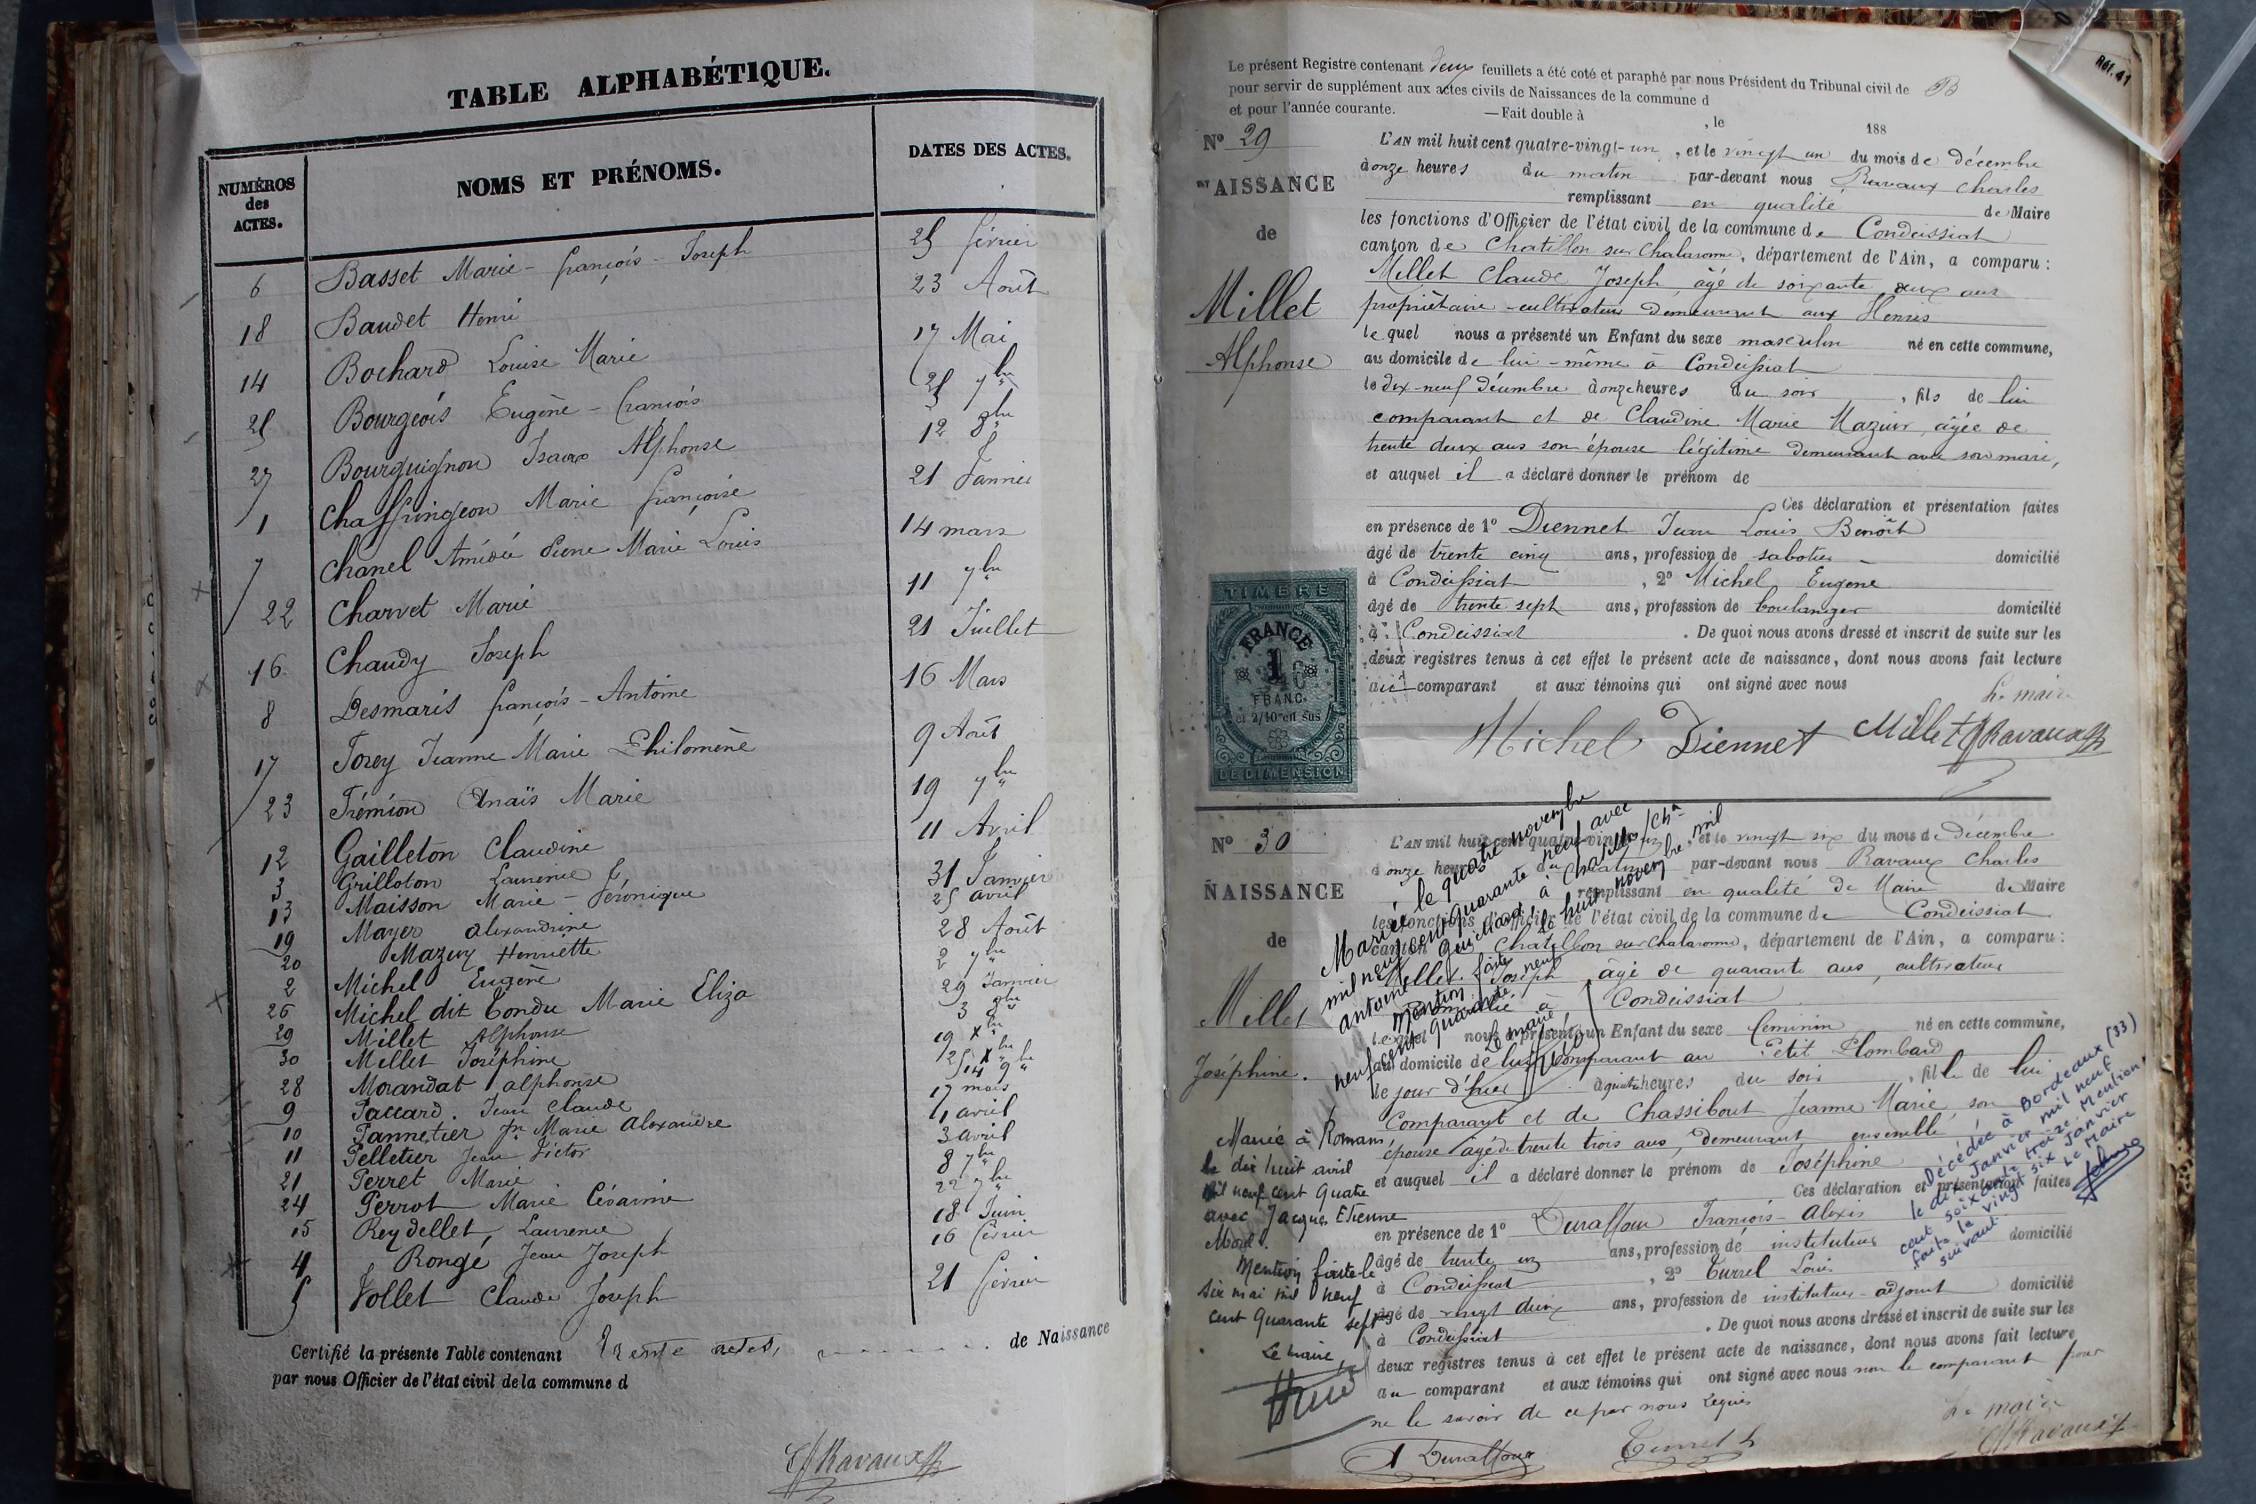 TABLE ALPHABÉTIQUE.
NUMÉROS des ACTES.
NOMS ET PRÉNOMS.
DATES DES ACTES.
6 Basset Marie-françois-Joseph 25 février
18 Baudet Henri 23 Août
14 Bochard Louise Marie 17 Mai
25 Bourgeois Eugène-François 25 7bre
27 Bourguignon Alphonse 12 8bre
1 Chaffringeon Marie françoise 21 Janvier
7 Chanel Amédée Pierre Marie Louis 14 mars
22 Charvet Marie 11 7bre
16 Chaudy Joseph 21 Juillet
8 Desmaris françois-Antoine 16 Mars
17 Forey Jeanne Marie Philomène 9 Août
23 Frémion Anaïs Marie 19 7bre
12 Gailleton Claudine 11 Avril
3 Grilloton Laurence 31 Janvier
13 Maisson Marie-Véronique 25 avril
19 Mayer alexandrine 28 Août
20 Mazuy Henriette 2 7bre
2 Michel Eugène 29 Janvier
26 Michel dit Tondu Marie Eliza 3 8bre
29 Millet Alphonse 19 Xbre
30 Millet Joséphine 25 Xbre
28 Morandat alphonse 14 9bre
9 Paccard. Jean Claude 17 mars
10 Pannetier Jn Marie Alexandre 1 avril
11 Pelletier Jean Victor 3 avril
21 Perret Marie 8 7bre
24 Perrot Marie Césarine 22 7bre
15 Reydellet, Laurence 18 Juin
4 Rongé Jean Joseph 16 février
5 Vollet Claude Joseph 21 février
Certifié la présente Table contenant trente actes, de Naissance
par nous Officier de l'état civil de la commune d
Ravaux
Réf. 41
Le présent Registre contenant deux feuillets a été coté et paraphé par nous Président du Tribunal civil de B
pour servir de supplément aux actes civils de Naissances de la commune d
et pour l'année courante. —Fait double à , le 188
No 29
NAISSANCE
de
Millet
Alphonse
L'AN mil huit cent quatre-vingt-un, et le vingt un du mois de décembre
à onze heures du matin par-devant nous Ravaux Charles
remplissant en qualité de Maire
les fonctions d'Officier de l'état civil de la commune de Condeissiat
canton de Chatillon sur Chalaronne, département de l'Ain, a comparu :
Millet Claude Joseph, âgé de soixante deux ans
propriétaire-cultivateur demeurant aux
le quel nous a présenté un Enfant du sexe masculin né en cette commune,
au domicile de lui-même à Condeissiat
le dix-neuf décembre à onze heures du soir, fils de lui
comparant et de Claudine Marie Mazuir, âgée de
trente deux ans son épouse légitime demeurant avec son mari,
et auquel il a déclaré donner le prénom de
Ces déclaration et présentation faites
en présence de 1o Diennet Jean Louis Benoît
âgé de trente cinq ans, profession de sabotier domicilié
à Condeissiat, 2o Michel, Eugène
âgé de trente sept ans, profession de boulanger domicilié
à Condeissiat. De quoi nous avons dressé et inscrit de suite sur les
deux registres tenus à cet effet le présent acte de naissance, dont nous avons fait lecture
au comparant et aux témoins qui ont signé avec nous
Le maire
Michel Diennet Millet Ravaux
TIMBRE
FRANCE
1
FRANC.
et 2/10es en sus
DE DIMENSION
No 30
NAISSANCE
de
Millet
Joséphine.
L'AN mil huit cent quatre-vingt un, et le vingt six du mois de décembre
à onze heures du matin par-devant nous Ravaux Charles
remplissant en qualité de Maire de Maire
les fonctions d'Officier de l'état civil de la commune de Condeissiat
canton de Chatillon sur Chalaronne, département de l'Ain, a comparu :
Millet Joseph, âgé de quarante ans, cultivateur
à Condeissiat
lequel nous a présenté un Enfant du sexe féminin né en cette commune,
au domicile de lui comparant au Petit Plombard
le jour d'hier à quatre heures du soir, fille de lui
Comparant et de Chassibout Jeanne Marie, son
épouse âgée de trente trois ans, demeurant ensemble,
et auquel il a déclaré donner le prénom de Joséphine
Ces déclaration et présentation faites
en présence de 1o Duraffour François-Alexis
âgé de trente un ans, profession de instituteur domicilié
à Condeissiat, 2o Turrel Louis
âgé de vingt deux ans, profession de instituteur-adjoint domicilié
à Condeissiat. De quoi nous avons dressé et inscrit de suite sur les
deux registres tenus à cet effet le présent acte de naissance, dont nous avons fait lecture
au comparant et aux témoins qui ont signé avec nous non le comparant pour
ne le savoir de ce par nous requis
Le maire
Duraffour Turrel L Ravaux
Mariée le quatre novembre
mil neuf cent quarante neuf avec
antoine Guichard, à Chatillon s/Chne
Mention faite le huit novembre mil
neuf cent quarante neuf
Le maire
Mariée à Romans,
le dix huit avril
mil neuf cent quatre
avec Jacques Etienne
Morel.
Mention faite le
six mai mil neuf
cent Quarante sept
Le maire
Décédée à Bordeaux (33)
le dix Janvier mil neuf
cent soixante treize. Mention
faite le vingt six Janvier
suivant. Le Maire